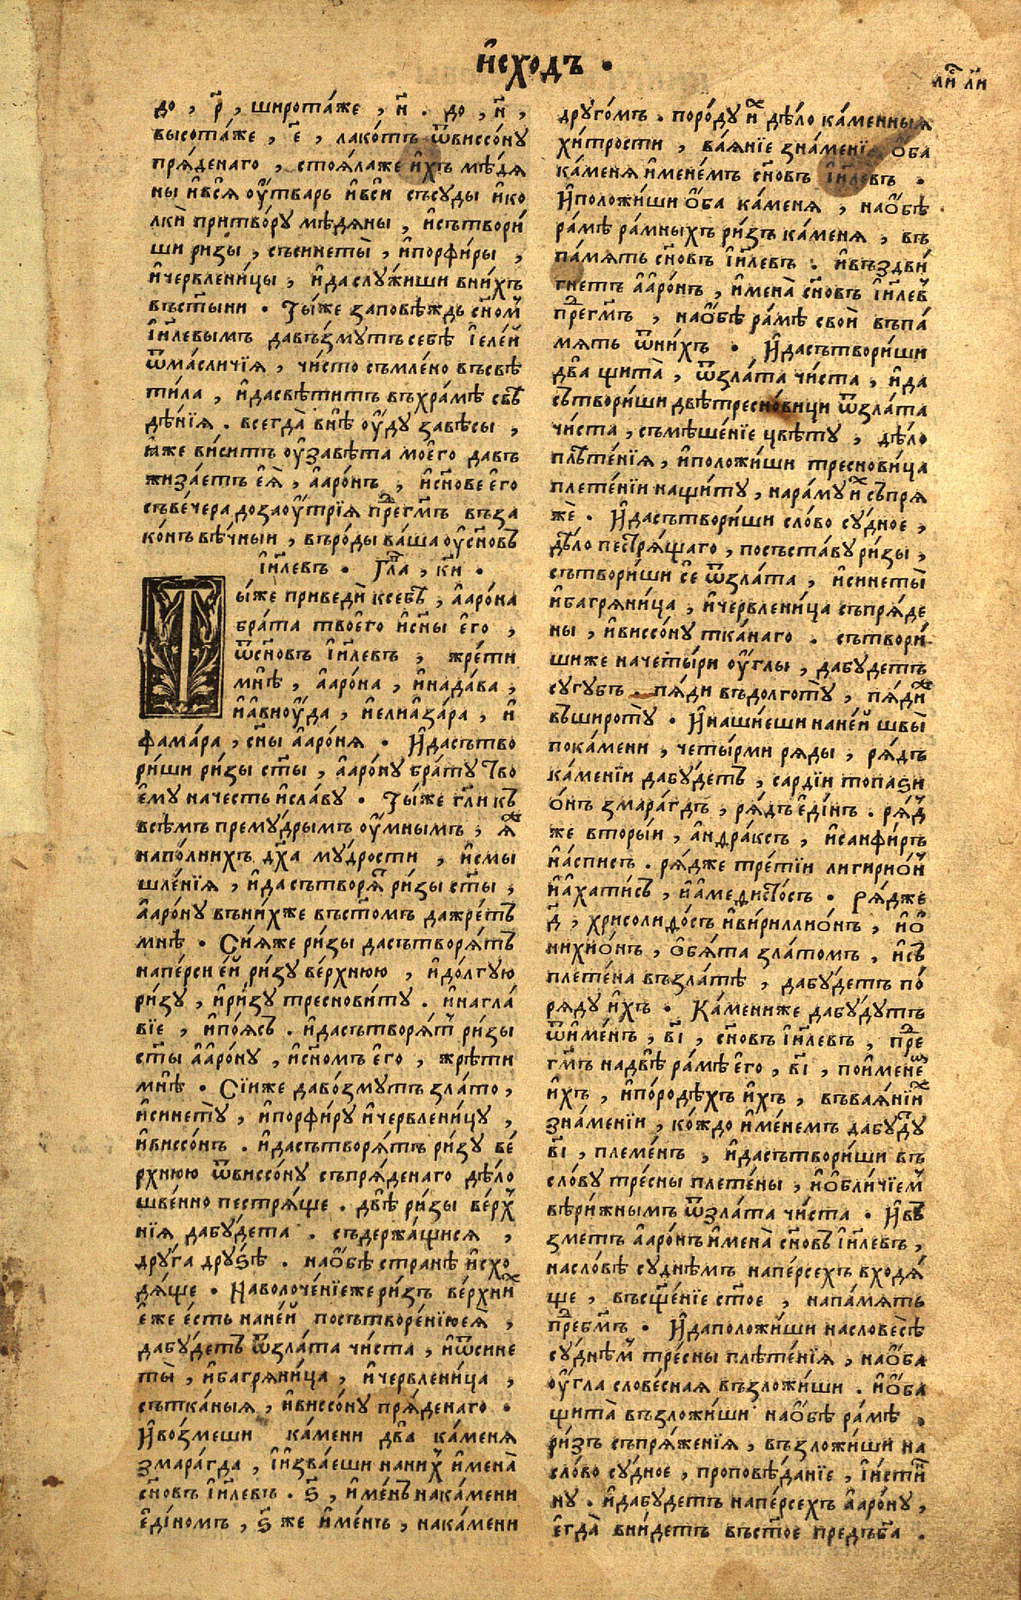 и҆схо́дъ .
ли́ст л҃и
до , р҃ , широта́же , н҃ . до , н҃ ,
высота́же , є҃ , лако́тъ ѿвиссо́ну
пря́денаго , стоя́лаже и҆́хъ мѣ́дя
ны и҆вся̀ оу҆́тварь и҆всѝ съсу́ды и҆ко
лкѝ притво́ру мѣ́дяны , и҆сътвори́
ши ри́зы , съсинеты̀ , и҆порфи́ры ,
и҆червлени́цы , и҆даслу́жиши вни́хъ
въст҃ы́ни . Ты́же заповѣ́ждь сн҃о́м
і҆и҃левымъ давъ́змутъ себѣ̀ і҆еле́й
ѿма́сличїя , чи́сто съмле́но въсвѣ
ти́ла , и҆дасвѣ́титъ въхра́мѣ свѣ
дѣ́нїя . всегда̀ внѣ̀ оу҆́ду завѣ́сы ,
ꙗ҆́же ви́ситъ оу҆завѣ́та моего̀ давъ
жиза́етъ є҆я̀ , а҆аро́нъ , и҆сн҃ове є҆го̀
съве́чера доꙁаоу҆́трїя пре́гм҃ъ въза
ко́нъ вѣ́чныи , въро́ды ва́ша оу҆сн҃о́въ
і҆и҃левъ . Гла҃ , к҃и .
Ты́же приведѝ ксебѣ̀ , а҆аро́на
бра́та твоего̀ и҆сн҃ы є҆го̀ ,
ѿсн҃о́въ і҆и҃левъ , жре́ти
мнѣ̀ , а҆аро́на , и҆нада́ва ,
и҆а҆вио́уда , и҆елиаза́ра , и҆
фама́ра , сн҃ы а҆аро́ня . И҆дасътво
ри́ши ри́зы ст҃ы , а҆аро́ну бра́ту тво
ємꙋ̀ начесть и҆сла́ву . Ты́же гл҃и къ
всѣ́мъ прему́дрымъ оу҆́мнымъ , ꙗ҆̀
напо́лнихъ дх҃а му́дрости , и҆смы
шле́нїя , и҆дасътворя́т ри́зы ст҃ы ,
а҆аро́ну въни́хже въст҃о́мъ дажре́тъ
мнѣ̀ . Сїя́же ри́зы дасътворя́тъ
напе́рси е҆́й ри́зу ве́рхнюю , и҆до́лгую
ри́зу , и҆ри́зу тресновиту . и҆нагла́
вїе , и҆по́ясъ . и҆дасътворя́т ри́зы
ст҃ы а҆аро́ну , и҆сн҃омъ є҆го̀ , жрѣ́ти
мнѣ̀ . Сїи́же даво́змутъ зла́то ,
и҆синету̀ , и҆порфи́ру и҆червлени́цу ,
и҆виссо́нъ . и҆дасътворя́тъ ри́зу ве́
рхнюю ѿвиссо́ну съпря́денаго дѣ́ло
шве́нно пестря́ще . двѣ̀ ри́зы ве́рх
нїя дабу́дета . съдержа́щися ,
дру́га дру́ѕѣ . наѻ҆́бѣ странѣ̀ и҆схо
дя́ще . Наволоче́нїежеризъ ве́рхнїи
є҆́же є҆́сть нане́й посътворе́нїюея̀ ,
дабу́детъ ѿзла́та чи́ста , и҆ѿсине
ты̀ , и҆багряни́ца , и҆червлени́ца ,
сътка́ныя , и҆виссо́ну пря́денаго .
И҆во́змеши ка́мени два̀ ка́меня
змара́гда , і҆изва́еши нани́х и҆мена̀
сн҃о́въ і҆и҃левъ . ѕ҃ , и҆ме́нъ нака́мени
є҆ди́номъ , ѕ҃ же и҆ме́нъ , нака́мени
друго́мъ . поро́ду и҆́х дѣ́ло ка́менныя
хи́трости , вая́нїе зна́менїя ѻ҆́ба
ка́меня и҆менемъ сн҃о́въ і҆и҃левъ .
И҆положи́ши ѻ҆́ба ка́меня , наѻ҆́бѣ
ра́мѣ ра́мныхъ ри́зъ ка́меня , въ
па́мять сн҃о́въ і҆и҃левъ . и҆въздви́
гнетъ а҆аро́нъ , и҆мена̀ сн҃о́въ і҆и҃лев
пре́гм҃ъ , наѻ҆́бѣ ра́мѣ своѝ въпа́
мять ѿни́хъ . И҆дасътвори́ши
два̀ щита̀ , ѿзла́та чи́ста , и҆да
сътвори́ши двѣ̀тресно́вици ѿзла́та
чи́ста , съмѣше́нїе цвѣ́ту , дѣ́ло
плѣте́нїя , и҆положи́ши тресно́вица
плете́нїи нащиту̀ , нараму́ и҆х съпря
жѐ . И҆дасътвори́ши сло́во су́дное ,
дѣ́ло пестря́щаго , посъста́ву ри́зы ,
сътвори́ши є҆̀ ѿзла́та , и҆синеты̀
и҆багряни́ца , и҆червлени́ца съпря́де
ны , и҆виссо́ну тка́наго . сътвори́
шиже начеты́ри оу҆́глы , дабу́детъ
сугу́бъ . пя́ди въдолготу̀ , пя́ди
въшироту̀ . И҆нашїеши нане́й швы̀
пока́мени , четы́рми ря́ды , ря́дъ
ка́менїи дабу́детъ , сарді́и топа́зи
ѻ҆́нъ змара́гдъ , ря́дъ є҆ди́нъ . ря́д
же вторы́и , а҆ндра́ксъ , и҆санфи́ръ
и҆а҆́списъ . ря́дже тре́тїи лигирио́н
и҆а҆ха́тисъ , и҆а҆меди́стосъ . Ря́дже
д҃ , хрисоли́досъ и҆вириллио́нъ , и҆ѻ
нихио́нъ , ѻ҆бя́та зла́томъ , и҆съ
плете́на възла́тѣ , дабу́детъ по́
ря́ду и҆́хъ . Ка́менїиже дабу́дутъ
ѿи҆ме́нъ , в҃і , сн҃о́въ і҆и҃левъ , пре
гм҃ъ надвѣ̀ ра́мѣ є҆го̀ , в҃і , поиме́не
и҆́хъ , и҆поро́дѣхъ и҆́хъ , въвая́нїи
зна́менїи , ко́ждо и҆́менемъ дабу́ду
в҃і , племе́нъ , и҆дасътвори́ши въ
сло́ву тре́сны плете́ны , и҆ѻ҆бли́чїем
вѣри́жнымъ ѿзла́та чи́ста . И҆въ
зметъ а҆аро́нъ и҆мена̀ сн҃о́въ і҆и҃левъ ,
насло́вѣ су́днѣмъ напе́рсехъ входя́
ще , въсще҃́нїе ст҃ое , напа́мять
пре́бм҃ъ . И҆даположи́ши насло́весѣ
су́днѣм тре́сны плѣте́нїя , наѻ҆́ба
оу҆́гла слове́сная възложи́ши . и҆ѻ҆́ба
щита̀ възложи́ши наѻ҆́бѣ ра́мѣ ,
ри́зъ съпряже́нїя , възложи́ши на
сло́во су́дное , проповѣ́данїе , і҆и́стин
ну . и҆дабу́детъ напе́рсехъ а҆аро́ну ,
є҆гда̀ вни́детъ въст҃о́е предъб҃а .